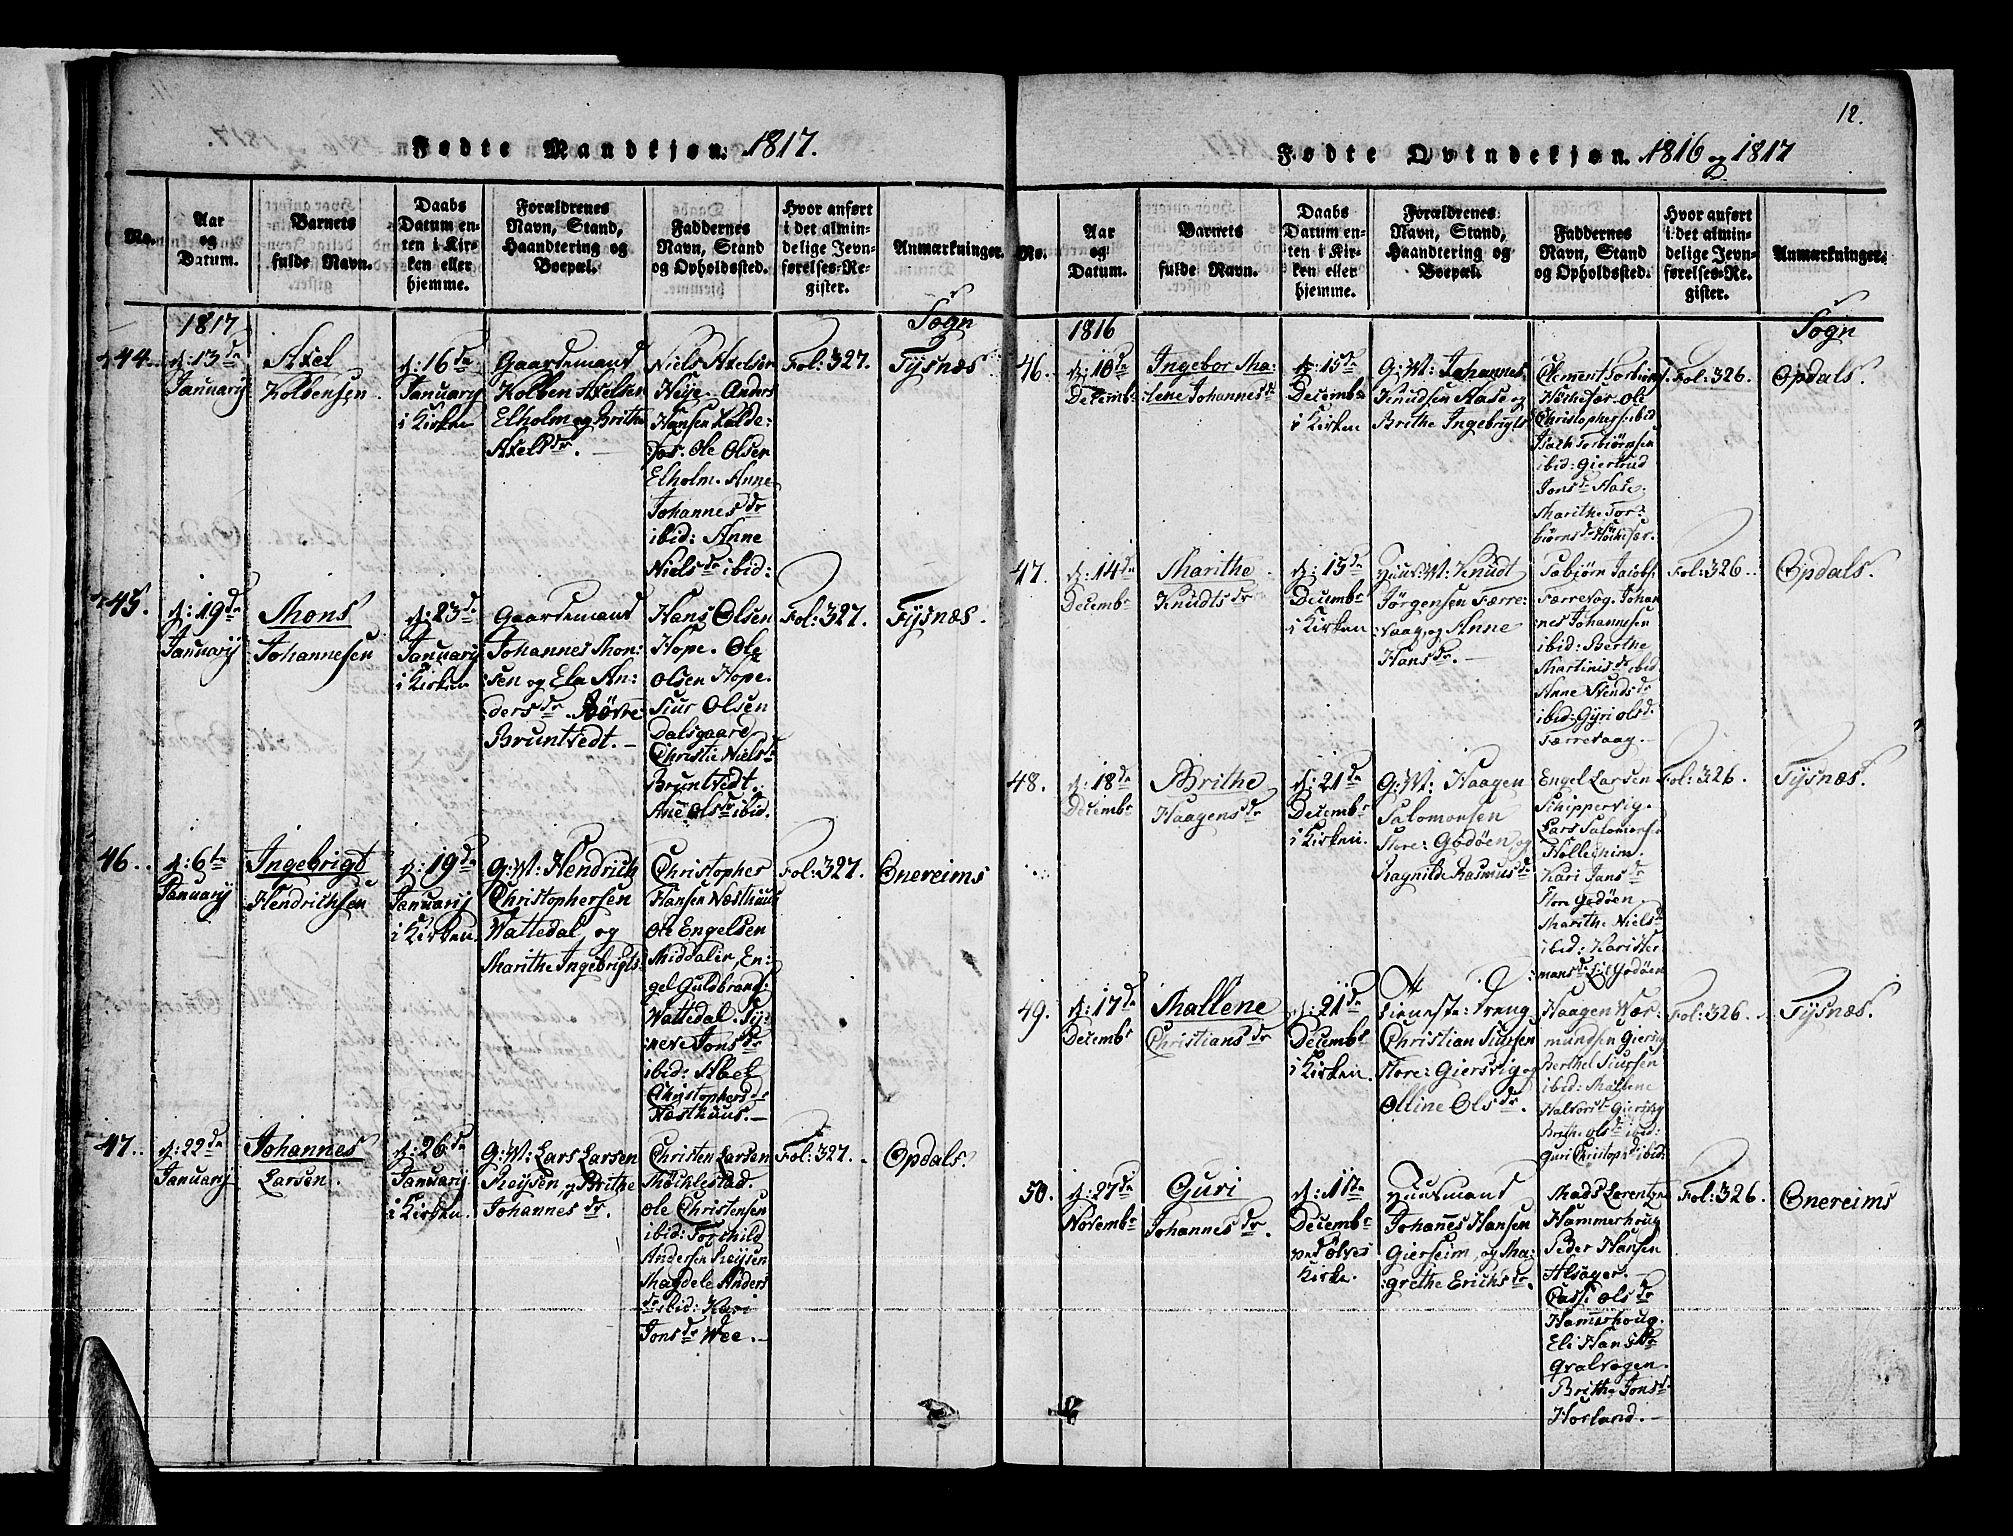 12.
Fødte Mandkjøn. 1817.
No.
Aar
og
Datum.
Barnets
fulde Navn.
Daabs
Datum en-
ten i Kir-
ken eller
hjemme.
Forældrenes
Navn, Stand,
Haandtering og
Boepæl.
Faddernes
Navn, Stand
og Opholdssted.
Hvor anført
i det almin-
delige Jevn-
førelses-Re-
gister.
Anmærkninger.
1817
Sogn
44.
d: 13de
Januarij
Axel
Kolbensen.
d: 16de
Januarij
i Kirken
Gaardemand
Kolben Axelsen
Elholm og Brithe
Axelsdr. —
Niels Axelsen
Høye. Anders
Hansen Kalde:
Ole Olsen
Elholm. Anne
Johannesdr
ibid: Anne
Nielsdr ibid:
Fol: 327.
Tysnæs.
45.
d: 19de
Januarij
Mons
Johannesen
d: 23de
Januarij
i Kirken
Gaardemand
Johannes Mon-
sen og Ela An-
dersdr. Røvre
Bruntvedt. —
Hans Olsen
Hope. Ole
Olsen Hope.
Siur Olsen
Dalsgaard
Christi Nielsdr
Bruntvedt.
Ane Olsdr ibid.
Fol: 327.
Tysnæs.
46.
d: 6te
Januarij
Ingebrigt
Hendrichsen
d: 19de
Januarij
i Kirken.
G: M: Hendrich
Christophersen
Wattedal og
Marithe Ingebrigts:
Christopher
Hansen Næsthuus
Ole Engelsen
Middalir, En:
gel Guldbrand:
Wattedal. Sy:
neve Jonsdr
ibid: Abel
Christophersdr
Næsthuus. —
Fol: 327.
Onereims
47.
d: 22de
Januarij
Johannes
Larsen.
d: 26de
Januarij.
i Kirken.
G: M: Lars Larsen
Røysen, og Brithe
Johannesdr.
Christen Larsen
Møchlestad.
Ole Christensen
ibid: Torchild
Andersen Røysen
Magdele Anders
dr ibid: Kari
Jonsdr Wee. —
Fol: 327.
Opdals.
Fødte Qvindekjøn. 1816 og 1817
No.
Aar
og
Datum.
Barnets
fulde Navn.
Daabs
Datum en-
ten i Kir-
ken eller
hjemme.
Forældrenes
Navn, Stand,
Haandtering og
Boepæl.
Faddernes
Navn, Stand
og Opholdssted.
Hvor anført
i det almin-
delige Jevn-
førelses-Re-
gister.
Anmærkninger.
1816
Sogn
46.
d: 10de
Decembr
Ingebor Ma:
lene Johannesdr
d: 15de
Decembr
i Kirken
G: M: Johannes
Knudsen Aase og
Brithe Ingebrigts
Clement Torbiørns
Høthefær. Ole
Christophers: ibid
Isach Torbiørnsen
ibid: Giertrud
Jonsdr Aase.
Marithe Tor-
biørnsdr Høthefær.
Fol: 326.
Opdals.
47.
d: 14de
Decembr
Marithe
Knudtsdr
d: 15de
Decembr
i Kirken
Huus M: Knudt
Jørgensen Færre:
vaag, og Anne
Hansdr. —
Tobjørn Jacobs
Færrevog. Johan
nes Johannesen
ibid: Berthe
Martinisdr ibid
Anne Svendsdr
ibid: Gyri Olsd.
Færrevaag. —
Fol: 326.
Opdals.
48.
d: 18de
Decembr
Brithe
Haagensdr
d: 21de
Decembr
i Kirken.
G: M: Haagen
Salomonsen
Store: Godøen og
Ragnilda Rasmusdr
Engel Larsen
Schippervig.
Lars Salomons
Hollechim.
Kari Jansdr
Store Godøen.
Marithe Nielsd
ibid: Kari
mansdr Lil Godøen
Fol: 326.
Tysnæs.
49.
d: 17de
Decembr
Mallene
Christiansdr
d: 21de
Decembr
i Kirken.
Tieneste: Dreng
Christian Siursen
Store: Giersvig og
Olline Olsdr.
Haagen Wær:
mundsen Giersvig
Berthe Siursen
ibid: Mallene
Halvorsd Giersvig
Brithe Olsdr ibid:
Guri Christophsd ibid:
Fol: 326.
Tysnæs.
50.
d: 27de
Novembr
Guri
Johannesdr.
d: 1ste
Decembr
ved Ølves
Kirke.
Huusmand
Johannes Hansen
Gierseim, og Ma:
grethe Erichsdr.
Mads Lorentzen
Hammerhoug
Peder Hansen
Alsager. —
Cassi Olsdr
Hamerhoug.
Eli Hansdr
Qvalvogen.
Brithe Jonsdr
Horland. —
Fol: 326.
Onereims